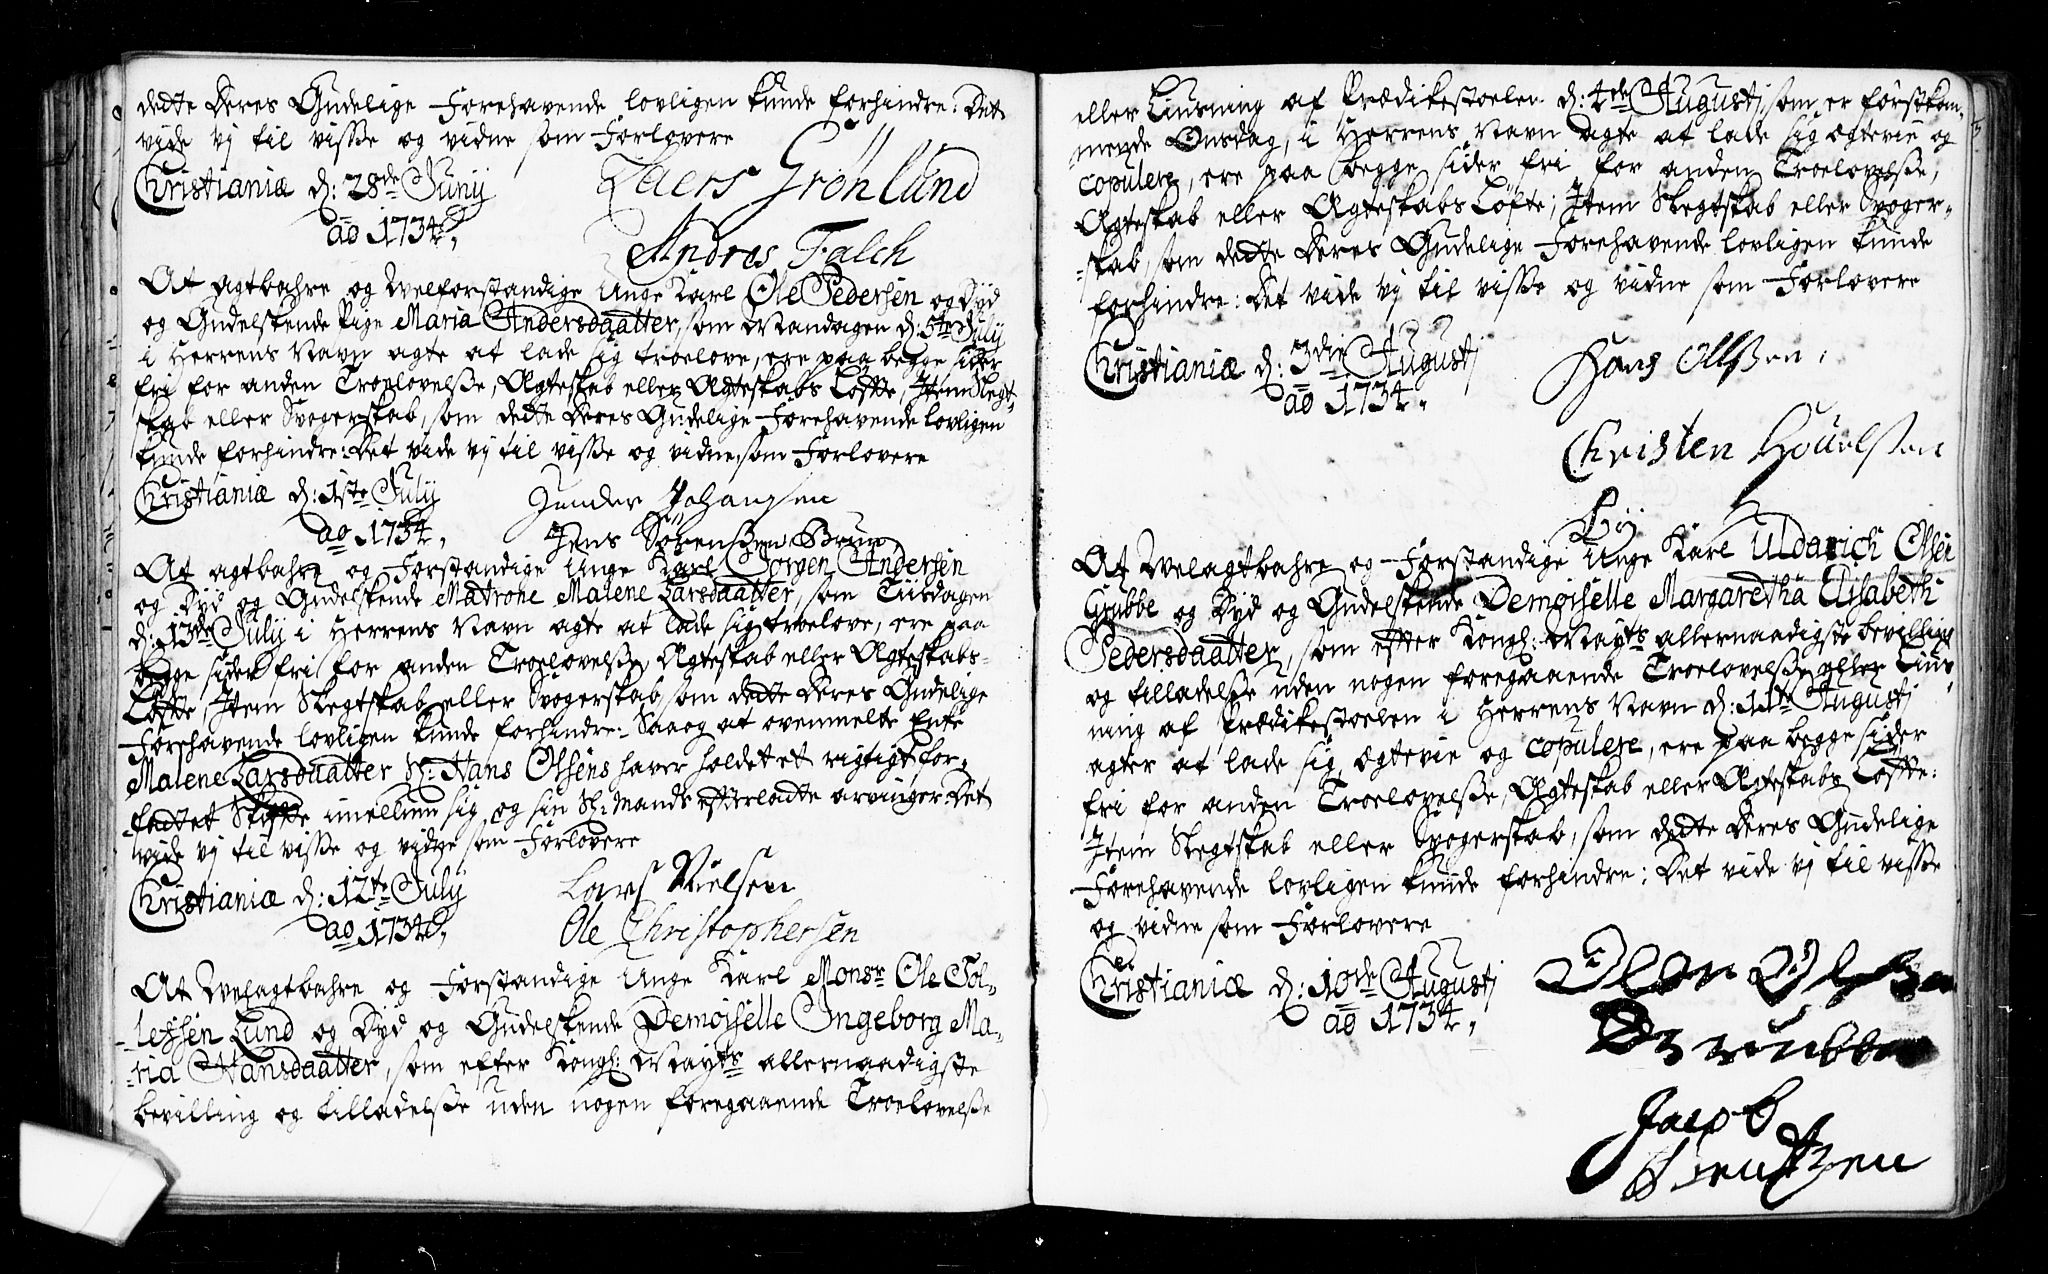 dette deres Gudelige Forehavende lovligen kunde forhindre: Det
vide vj til visse og vidne som Forlovere
Christianiæ d: 28de Junij
ao 1734.
Laers Gröhlund
Andres Falch
At agtbahre og Welforstandige Unge Karl Ole Pedersen og Dyd
og Gudelskende Pige Maria Andersdaatter, som Mandagen d: 5te July
i Herrens Navn agte at lade sig troelove, ere paa begge sider
fri for anden Troelovelsse, Ægteskab eller Ægteskabs Løfte, Item Slegt-
skab eller Svogerskab, som dette deres Gudelige Forehavende lovligen
kunde forhindre: Det vide vj til visse og vidne som Forlovere
Christianiæ d: 1ste July
ao 1734.
Gunder Johansen
Jens Sörenssen Bruun
At agtbahre og Forstandige Unge Karl Jörgen Andersen
og Dyd og Gudelskende Matrone Malene Larsdaatter, som Tiisdagen
d: 13de July i Herrens Navn agte at lade sig troelove, ere paa
begge sider fri for anden Troelovelsse, Ægteskab eller Ægteskabs-
Løfte, Item Slegtskab eller Svogerskab, som dette deres Gudelige
Forehavende lovligen kunde forhindre: Saa og at ovenmelte Enke
Malene Larsdaatter Sl: Hans Olsens haver holdet et rigtigt for-
fattet Skifte imellum sig og sin Sl: Mands efterladte arvinger. Det
vide vj til visse og vidne som Forlovere
Christianiæ d: 12te July
ao 1734.
Lars Nielsen
Ole Christophersen
At Welagtbahre og Forstandige Unge Karl Monsr Ole Tol-
lefsen Lund og Dyd og Gudelskende Demoiselle Ingeborg Ma-
ria Hansdaatter, som efter Kongl: Mayts allernaadigste
bevilling og tilladelsse uden nogen foregaaende Troelovelsse
eller Liusning af Prædikestoelen d: 4de Augustj som er førstkom-
mende Onsdag, i Herrens Navn agte at lade sig ægtevie og
copulere, ere paa begge sider fri for anden Troelovelsse,
Ægteskab eller Ægteskabs Løfte; Item Slegtskab eller Svoger-
skab, som dette deres Gudelige Forehavende lovligen kunde
forhindre: Det vide vj til visse og vidne som Forlovere
Christianiæ d: 3die Augustj
ao 1734.
Hans Ollssen
Christen Houelssen
Lij
At Welagtbahre og Forstandige Unge Karl Uldarich Olsen
Grubbe og Dyd og Gudelskende Demoiselle Margaretha Elisabeth
Pedersdaatter, som efter Kongl: Mayts allernaadigste bevilling
og tilladelsse uden nogen foregaaende Troelovelsse eller Lius-
ning af Prædikestoelen i Herrens Navn d: 11te Augustj
agter at lade sig ægtevie og copulere, ere paa begge sider
fri for anden Troelovelsse, Ægteskab eller Ægteskabs Løfte:
Item Slegtskab eller Svogerskab, som dette deres Gudelige
Forehavende lovligen kunde forhindre: Det vide vj til visse
og vidne som Forlovere
Christianiæ d: 10de Augustj
ao 1734.
Olor Olssen
Grubbe
Jacob
Wentzen